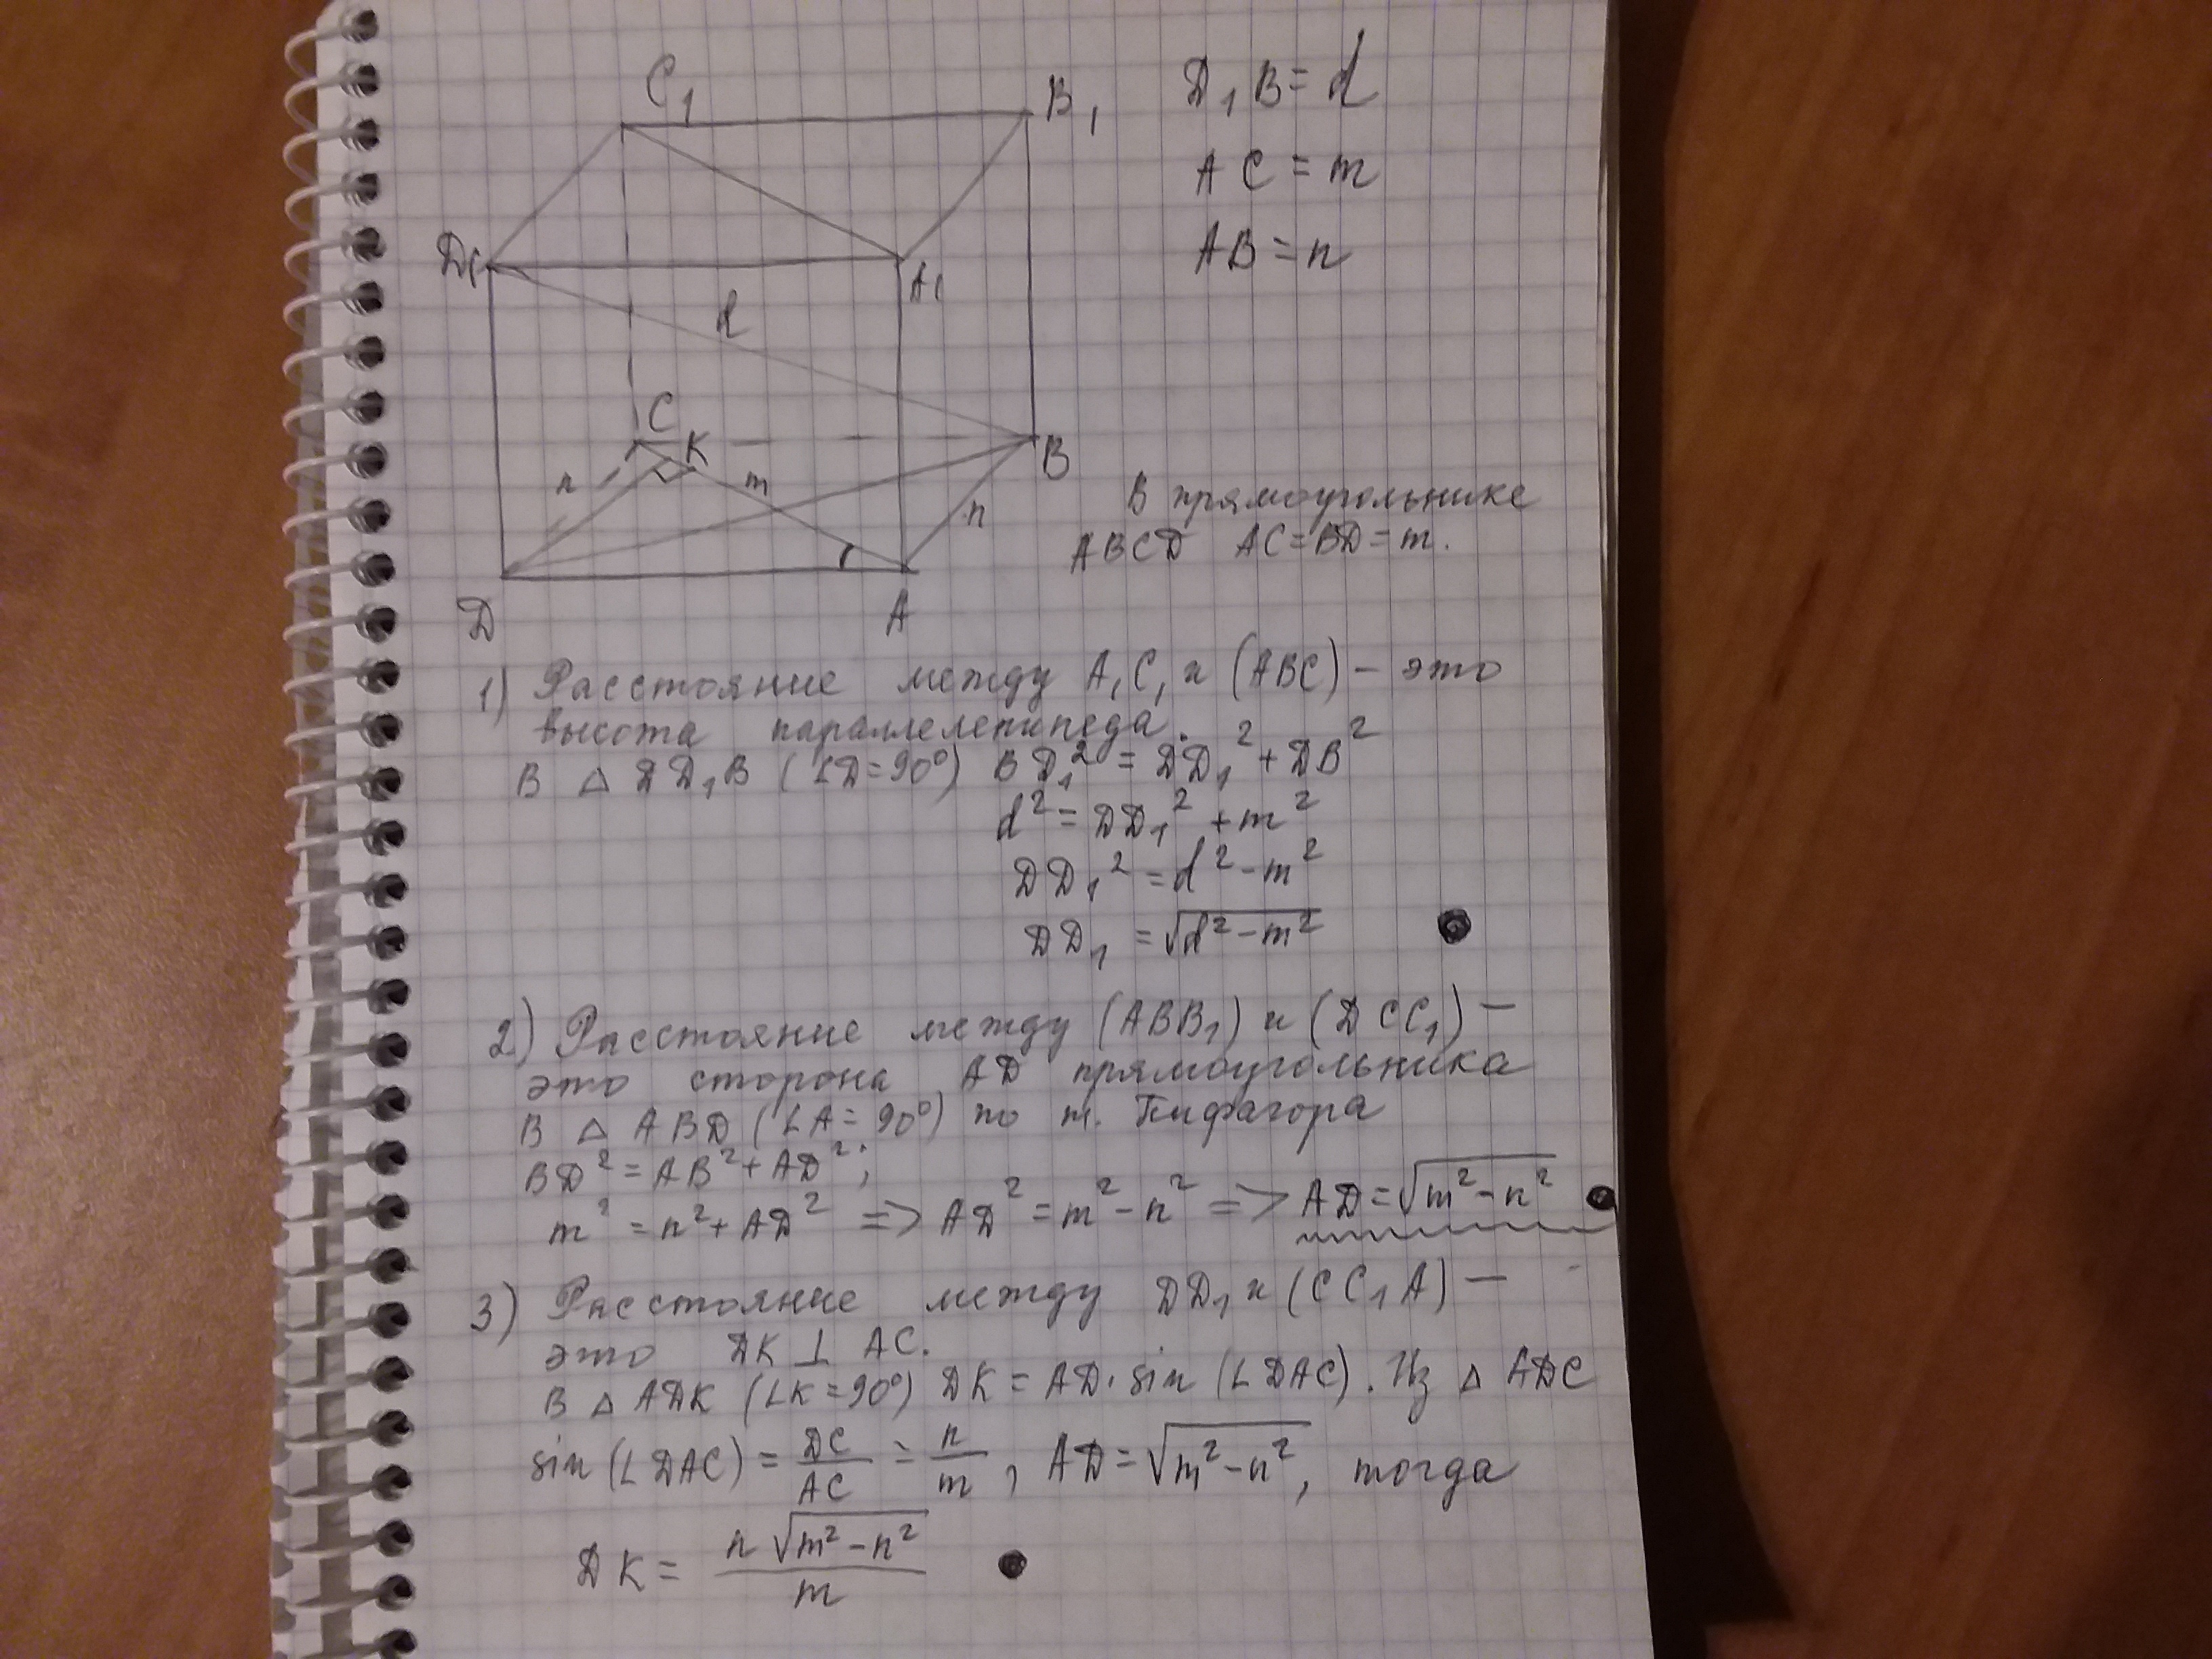 C₁
B₁
D₁B = d
AC = m
AB = n
Д₁
A₁
d
C
K
B
n
m
n
В прямоугольнике
ABCD AC = BD = m.
Д
A
1) Расстояние между A₁C₁ и (ABC) – это
высота параллелепипеда.
В △ DD₁B (∠D = 90°) BD₁² = DD₁² + DB²
d² = DD₁² + m²
DD₁² = d² - m²
DD₁ = √(d² - m²)
2) Расстояние между (ABB₁) и (DCC₁) –
это сторона AD прямоугольника
В △ ABD (∠A = 90°) по т. Пифагора
BD² = AB² + AD²;
m² = n² + AD² => AD² = m² - n² => AD = √(m² - n²)
3) Расстояние между DD₁ и (CC₁A) –
это DK ⊥ AC.
В △ ADK (∠K = 90°) DK = AD · sin (∠DAC). Из △ ADC
sin (∠DAC) = DC/AC = n/m, AD = √(m² - n²), тогда
DK = n√(m² - n²)/m